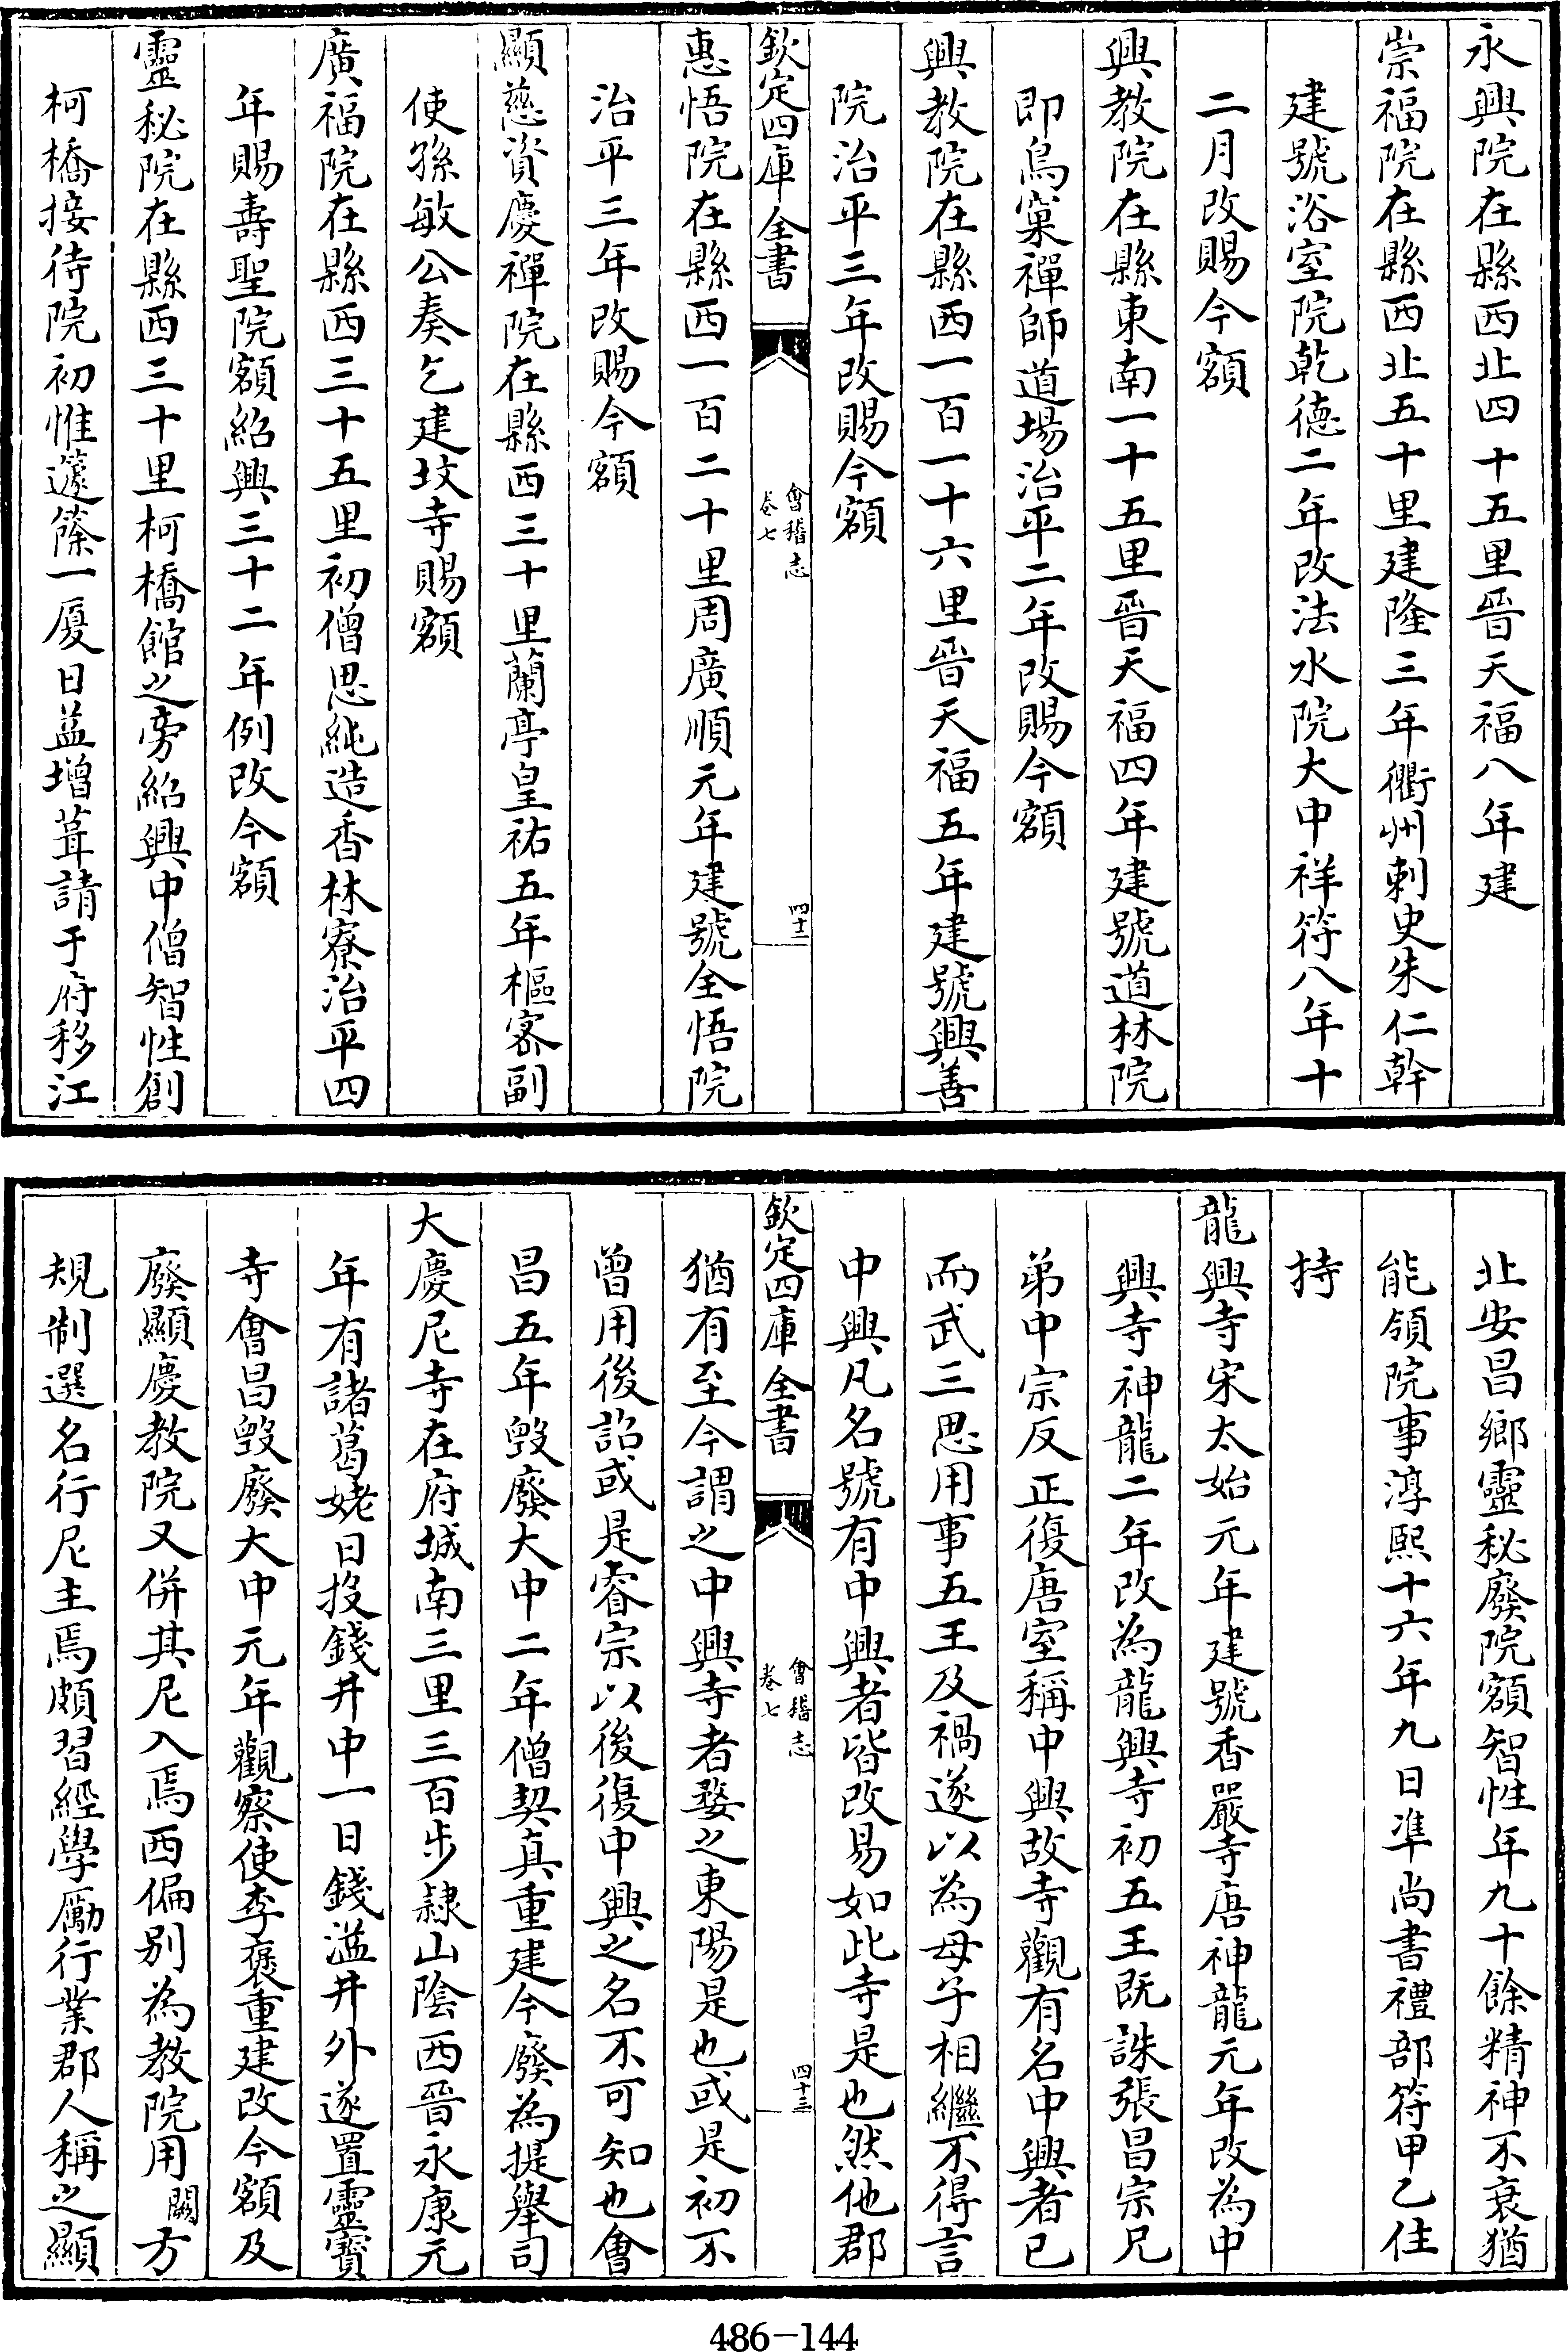 永興院在縣西北四十五里晉天福八年建
崇福院在縣西北五十里建隆三年衢州刺史朱仁幹
建號浴室院乾德二年改法水院大中祥符八年十
二月改賜今額
興教院在縣東南一十五里晉天福四年建號道林院
即鳥窠禪師道場治平二年改賜今額
興教院在縣西一百一十六里晉天福五年建號興善
院治平三年改賜今額
欽定四庫全書
會稽志
卷七
四十二
惠悟院在縣西一百二十里周廣順元年建號全悟院
治平三年改賜今額
顯慈資慶禪院在縣西三十里蘭亭皇祐五年樞密副
使孫敏公奏乞建墳寺賜額
廣福院在縣西三十五里初僧思純造香林寮治平四
年賜壽聖院額紹興三十二年例改今額
靈秘院在縣西三十里柯橋館之旁紹興中僧智性創
柯橋接待院初惟蘧篨一廈日益增葺請于府移江
北安昌鄉靈秘廢院額智性年九十餘精神不衰猶
能領院事淳熙十六年九日準尚書禮部符甲乙住
持
龍興寺宋太始元年建號香嚴寺唐神龍元年改為中
興寺神龍二年改為龍興寺初五王既誅張昌宗兄
弟中宗反正復唐室稱中興故寺觀有名中興者已
而武三思用事五王及禍遂以為母子相繼不得言
中興凡名號有中興者皆改易如此寺是也然他郡
欽定四庫全書
會稽志
卷七
四十三
猶有至今謂之中興寺者婺之東陽是也或是初不
曾用後詔或是睿宗以後復中興之名不可知也會
昌五年毀廢大中二年僧契真重建今廢為提舉司
大慶尼寺在府城南三里三百步隸山陰西晉永康元
年有諸葛姥日投錢井中一日錢溢井外遂置靈寶
寺會昌毀廢大中元年觀察使李褒重建改今額及
廢顯慶教院又併其尼入焉西偏別為教院用闕方
規制選名行尼主焉頗習經學勵行業郡人稱之顯
486-144